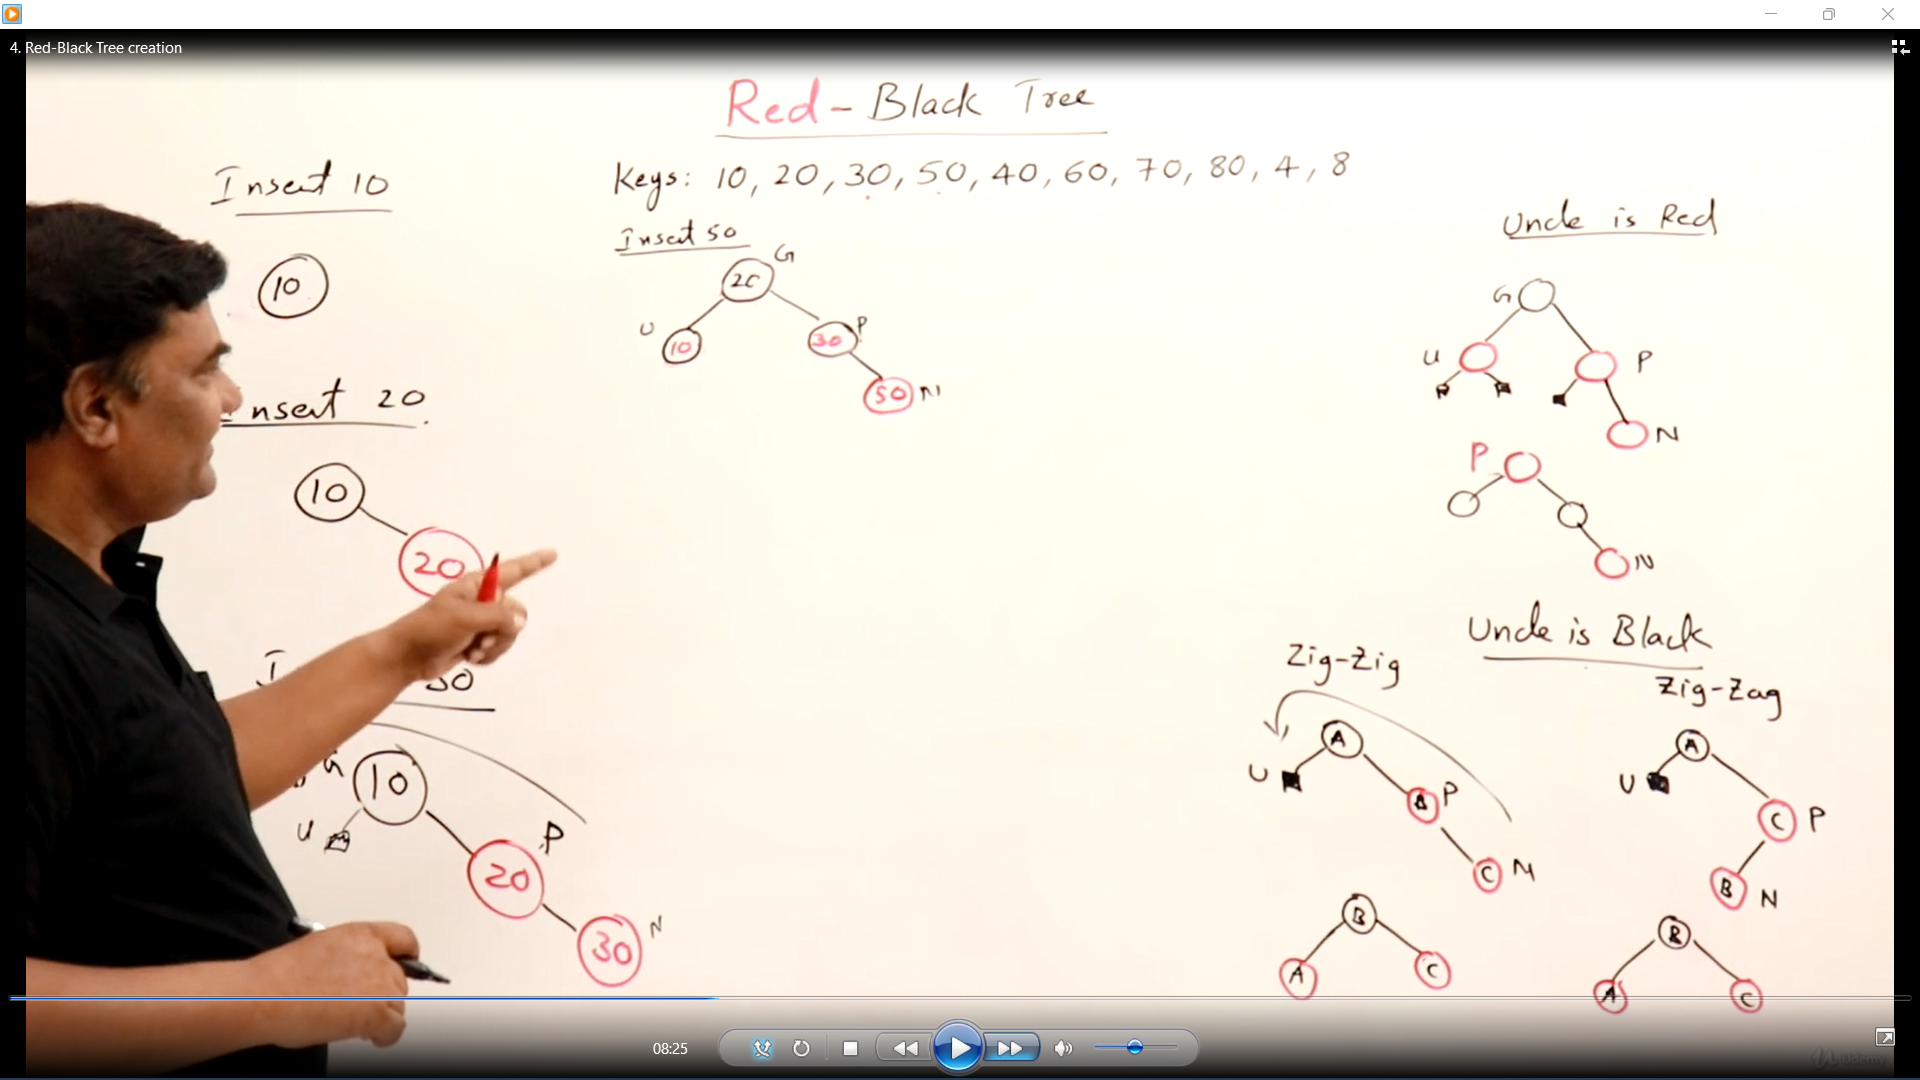 4. Red-Black Tree creation
Red - Black Tree
Keys: 10, 20, 30, 50, 40, 60, 70, 80, 4, 8
Insert 10
10
Insert 20
10
20
30
G
10
U
P
20
30
N
Insert 50
G
20
U
10
P
30
50
N
Uncle is Red
G
U
P
N
P
N
Uncle is Black
Zig-Zig
A
U
P
C
N
B
A
C
Zig-Zag
A
U
C
P
B
N
B
A
C
08:25
Udemy